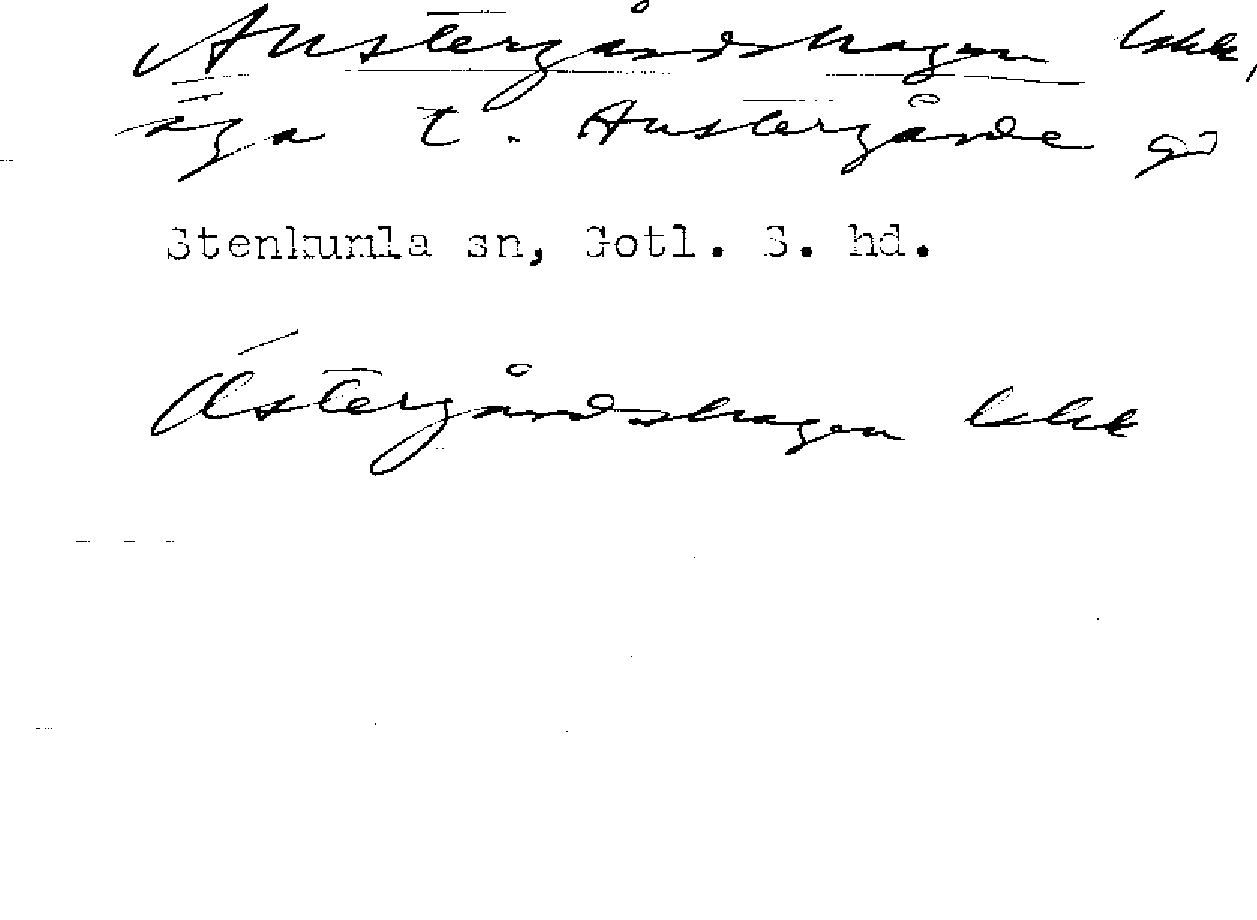 Austergårdshagen
äga t. Austergårde gd
Stenkumla sn, Gotl. S. hd.
Östergårdshagen